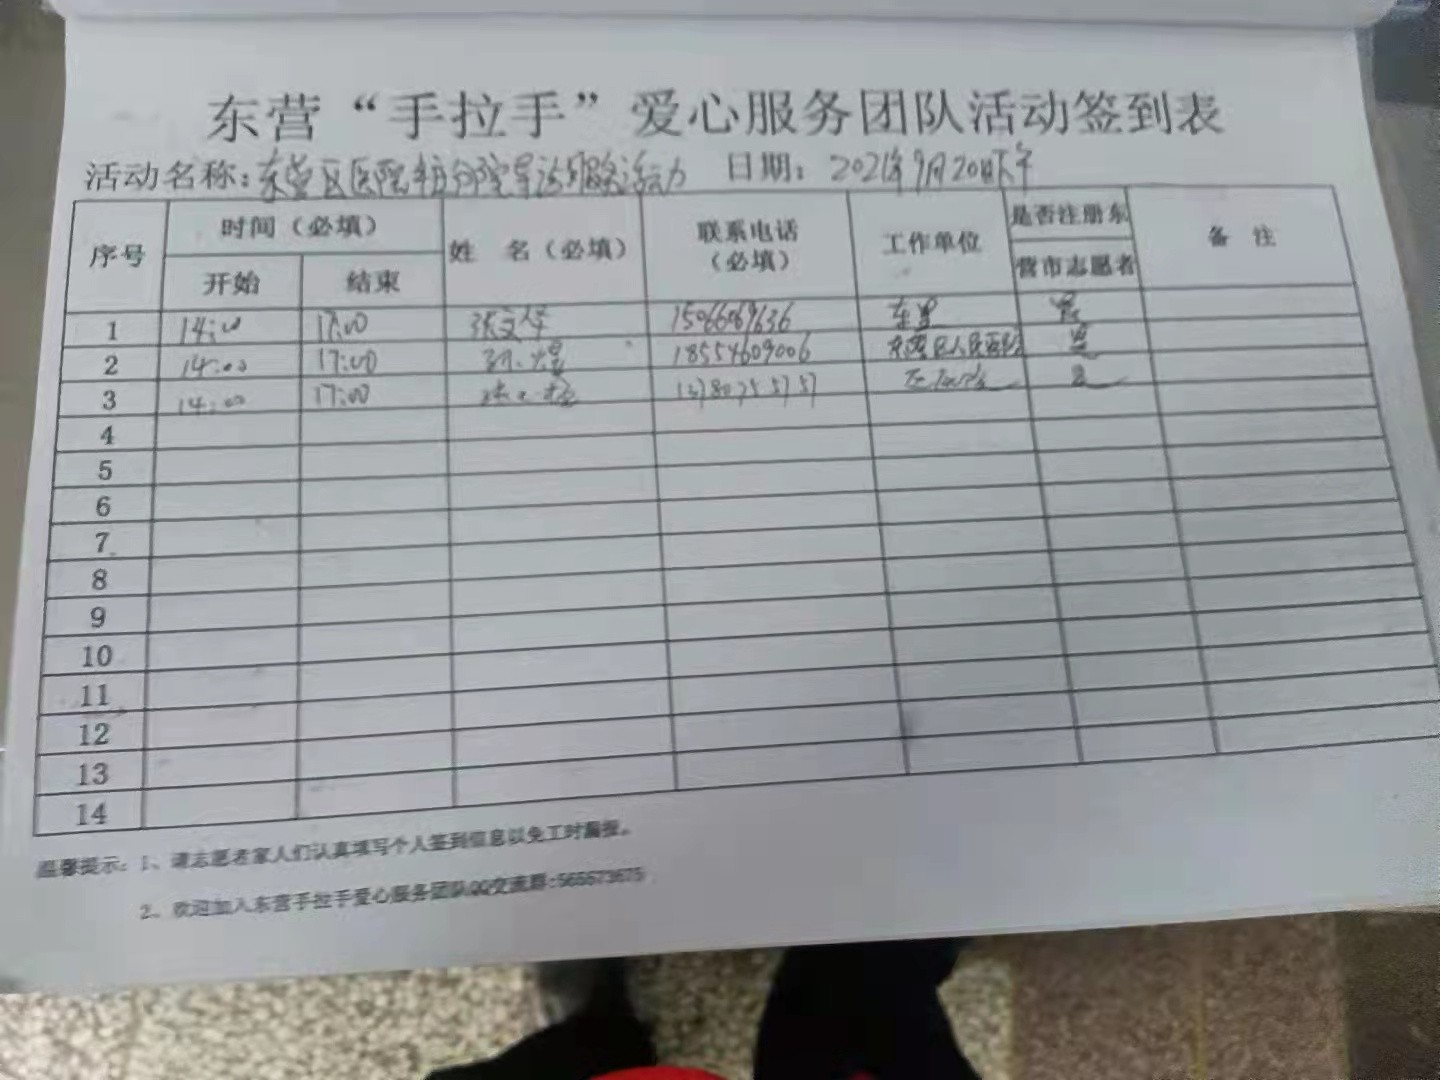 东营“手拉手”爱心服务团队活动签到表
活动名称：东营区医院 分院导诊服务活动 日期：2021年9月20日下午
序号 时间（必填） 姓 名（必填） 联系电话（必填） 工作单位 是否注册东营市志愿者 备 注
开始 结束
1 14:00 17:00 张文华 15066069636 是
2 14:00 17:00 18554609006 东营区人民医院 是
3 14:00 17:00 13780755757 是
4
5
6
7
8
9
10
11
12
13
14
温馨提示：1、请志愿者家人们认真填写个人签到信息以免工时漏报。
2、欢迎加入东营手拉手爱心服务团队QQ交流群:565673675